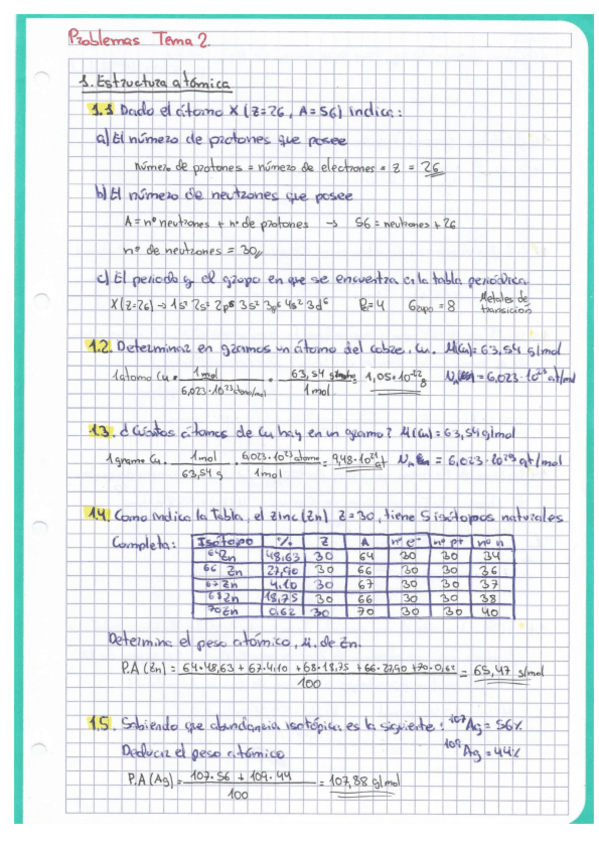 Problemas Tema 2.
1. Estructura atómica
1.1 Dado el átomo X (Z=26, A=56) indica:
a) El número de protones que posee
número de protones = número de electrones = Z = 26
b) El número de neutrones que posee
A = nº neutrones + nº de protones → 56 = neutrones + 26
nº de neutrones = 30
c) El periodo y el grupo en que se encuentra en la tabla periódica
X (Z=26) → 1s² 2s² 2p⁶ 3s² 3p⁶ 4s² 3d⁶ P=4 Grupo = 8 Metales de transición
1.2. Determinar en gramos un átomo del cobre. Cu. M(Cu)= 63,54 g/mol
1 átomo Cu · 1 mol / 6,023·10²³ átomo/mol · 63,54 g / 1 mol = 1,05·10⁻²² g = 6,023·10²³ at/mol
1.3. ¿Cuántos átomos de Cu hay en un gramo? M(Cu)= 63,54 g/mol
1 gramo Cu · 1 mol / 63,54 g · 6,023·10²³ átomo / 1 mol = 9,48·10²¹ at = 6,023·10²³ at/mol
1.4. Como indica la tabla, el zinc (Zn) Z=30, tiene 5 isótopos naturales
Completa:
Isótopo % Z A nº e⁻ nº p+ nº n
⁶⁴Zn 48,63 30 64 30 30 34
⁶⁶Zn 27,90 30 66 30 30 36
⁶⁷Zn 4,10 30 67 30 30 37
⁶⁸Zn 18,75 30 66 30 30 38
⁷⁰Zn 0,62 30 70 30 30 40
Determina el peso atómico, M. de Zn.
P.A (Zn) = 64·48,63 + 67·4,10 + 68·18,75 + 66·27,90 + 70·0,62 / 100 = 65,47 g/mol
1.5. Sabiendo que abundancia isotópica es la siguiente: ¹⁰⁷Ag = 56%
¹⁰⁹Ag = 44%
Deducir el peso atómico
P.A (Ag) = 107·56 + 109·44 / 100 = 107,88 g/mol